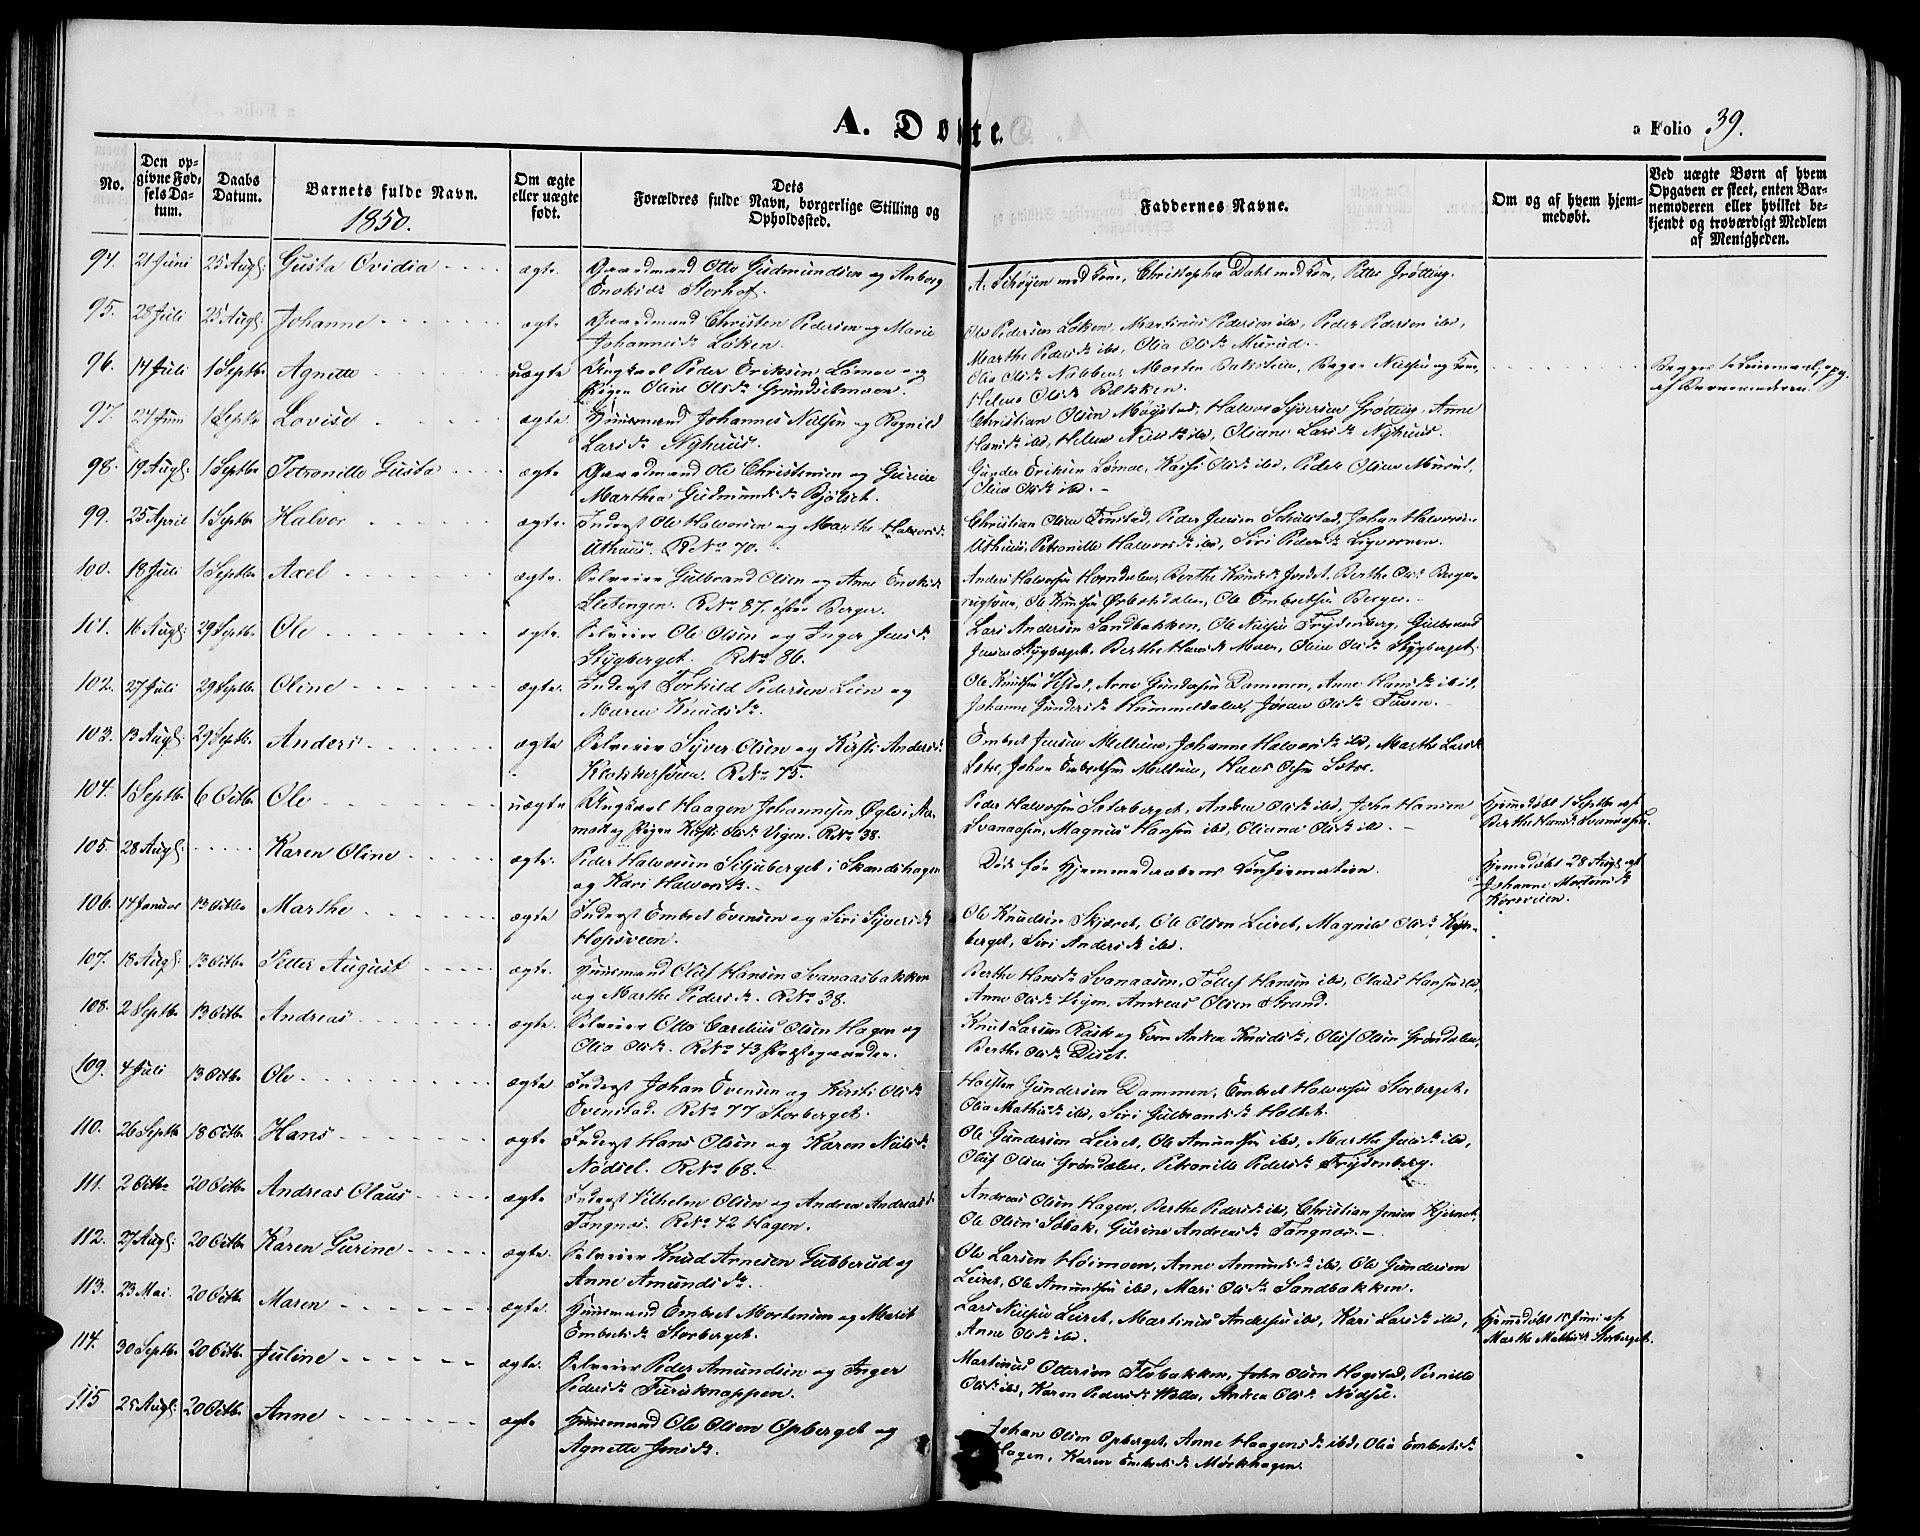 A. Døbte.
a Folio 39.
No.
Den opgivne Fødsels Datum.
Daabs Datum.
Barnets fulde Navn.
1850.
Om ægte eller uægte født.
Dets Forældres fulde Navn, borgerlige Stilling og Opholdssted.
Faddernes Navne.
Om og af hvem hjemmedøbt.
Ved uægte Børn af hvem Opgaven er skeet, enten Barnemoderen eller hvilket bekjendt og troværdigt Medlem af Menigheden.
94. 21 Juni 25 Augl: Gusta Ovidia ægte. Gaardmand Otto Gudmundsen og Anborg
Enoksdr Storhof.
A. Schøyen med Kone, Christopher Dahl med Kone, Petter Grøtting.
95. 28 Juli 25 Augl: Johanne ægte Gaardmand Christen Pedersen og Marie
Johannesdr Løken.
Ole Pedersen Løken, Martinus Pedersen ibd, Peder Pedersen ibd,
Marthe Pedersdr ibd, Olia Olsdr Murud.
96. 14 Juli 1 Septbr Agnette uægte Ungkarl Peder Eriksen Lømoe og
Pigen Oline Olsdr Grundsetmoen.
Helene Olsdr Bakken.
af Barnemoderen.
97. 24 Juni 1 Septbr Lovise ægte Huusmand Johannes Nilsen og Ragnild
Larsdr Nyhuus.
Christian Olsen Møystad, Halvor Syversen Grøtting, Anne
Hansdr ibd, Helene Nielsdr ibd, Oliane Larsdr Nyhuus.
98. 19 Augl: 1 Septbr Petronille Gusta ægte Gaardmand Ole Christensen og Gurine
Marthea Gudmundsdr Bjølset.
Gunder Eriksen Lømoe, Kari Olsdr ibd, Peder Olsen Murud,
Oline Olsdr ibd.
99. 25 April 1 Septbr Halvor ægte. Inderst Ole Halvorsen og Marthe Halvorsdr
Uthuus. RNo 70.
Christian Olsen Tønstad, Peder Jensen Schulstad, Johan Halvorsen
Uthuus, Petronille Halvorsdr ibd, Siri Pedersdr
100. 18 Juli 1 Septbr Axel ægte. Selveier Gulbrand Olsen og Anne Enoksdr
Sletingen. RNo 87. østre Berger.
Anders Halvorsen Horndalen, Berthe Knudsdr Jordet, Berthe Olsdr
Ole Knudsen Ørbeksdalen, Ole Embretsen Berger.
101. 16 Augl: 29 Septbr Ole ægte. Selveier Ole Olsen og Inger Jensdr
Stygberget. RNo 86.
Lars Andersen Sandbakken, Ole Nielsen Frydenberg, Gulbrand
Jensen Stygberget, Berthe Hansdr Moen, Oline Olsdr Stygberget.
102. 27 Juli 29 Septbr Oline ægte. Inderst Torkild Pedersen Lein og
Maren Knudsdr.
Ole Knudsen Vestad, Arne Gundersen Dammen, Anne Hansdr ibid,
Johanne Gundersdr Hummeldalen, Jøran Olsdr
103. 13 Augl: 29 Septbr. Anders ægte Selveier Syver Olsen og Kirsti Andersdr
Klokkersveen. RNo 75.
Embret Jensen Meltrud, Johanne Halvorsdr ibd, Marthe Larsdr
Sætre, Johan Embretsen Meltrud, Hans Olsen Sætre.
104. 1 Septbr 6 Octbr Ole uægte Ungkarl Haagen Johannesen Øgle i Aamodt og Pigen Kirsti Olsdr Vigen. RNo 38.
Peder Halvorsen Sæterberget, Andrea Olsdr ibd, John Hansen
Svanaasen, Magnus Hansen ibd, Oliana Olsdr ibd.
Hjemmedøbt 1 Septbr af
Berthe Hansdr Svanaasen.
105. 28 Augl: Karen Oline ægte. Peder Halvorsen Siljuberget i Skandshagen
og Kari Halvorsdr.
Døde før Hjemmedaabens Confirmation.
Hjemmedøbt 28 Augl af
Johanne Mortensdr
106. 14 Januar 13 Octbr Marthe ægte Inderst Embret Evensen og Siri Syversdr
Hopsveen.
Ole Knudsen Skjæret, Ole Olsen Leiret, Magnild Olsdr
berget, Siri Andersdr ibd.
107. 18 Augl: 13 Octbr Petter August ægte. Huusmand Oluf Hansen Svanaasbakken
og Marthe Pedersdr. RNo 38.
Berthe Hansdr Svanaasen, Tollef Hansen ibd, Olaus Hansen ibd,
Anne Olsdr Vigen, Andreas Olsen Strand.
108. 2 Septbr 13 Octbr Andreas ægte. Selveier Otto Carelius Olsen Hagen og
Olia Olsdr. RNo 43 Præstegaarden.
Knud Larsen Rask og Kone Andrea Knudsdr, Oluf Olsen Grøndalen,
Berthe Olsdr Diset.
109. 4 Juli 13 Octbr Ole ægte Inderst Johan Evensen og Kirsti Olsdr
Evenstad. RNo 77 Storberget.
Halsten Gundersen Dammen, Embret Halvorsen Storberget,
Olia Mathisdr ibd, Siri Gulbrandsdr Holtet.
110. 26 Septbr 18 Octbr Hans ægte Inderst Hans Olsen og Karen Nielsdr
Nødsel. RNo 68.
Ole Gundersen Leiret, Ole Amundsen ibd, Marthe Jensdr ibd,
Oluf Olsen Grøndalen, Petronille Pedersdr Frydenberg.
111. 2 Octbr 20 Octbr Andreas Olaus ægte Inderst Vilhelm Olsen og Andrea Andreasdr
Tangnæs. RNo 42 Hagen.
Andreas Olsen Hagen, Berthe Pedersdr ibd, Christian Jensen Kjernet,
Ole Olsen Søbak, Gurine Andreasdr Tangnæs.
112. 27 Augl: 20 Octbr Karen Gurine ægte. Selveier Knud Arnesen Gubberud og
Anne Amundsdr.
Ole Larsen Høimoen, Anne Amundsdr ibd, Ole Gundersen
Leiret, Ole Amundsen ibd, Mari Olsdr Sandbakken.
113. 23 Mai. 20 Octbr Maren ægte. Huusmand Embret Mortensen og Marit
Embretsdr Storberget.
Lars Nielsen Leiret, Martinus Andersen ibd, Kari Larsdr ibd,
Anne Olsdr ibd.
Hjemmedøbt 15 Juni af
Marthe Mathisdr Storberget.
114. 30 Septbr 20 Octbr Juline ægte. Selveier Peder Amundsen og Inger
Pedersdr Furuknappen.
Martinus Ottersen Flobakken, John Olsen Hogstad, Pernille
Olsdr ibd, Karen Pedersdr Holte, Andrea Olsdr Nødsel.
115 25 Augl: 20 Octbr Anne ægte Huusmand Ole Olsen Opberget og
Agnette Jensdr.
Johan Olsen Opberget, Anne Haagensdr ibd, Olia Embretsdr
Hagen, Karen Embretsdr Mørkhagen.